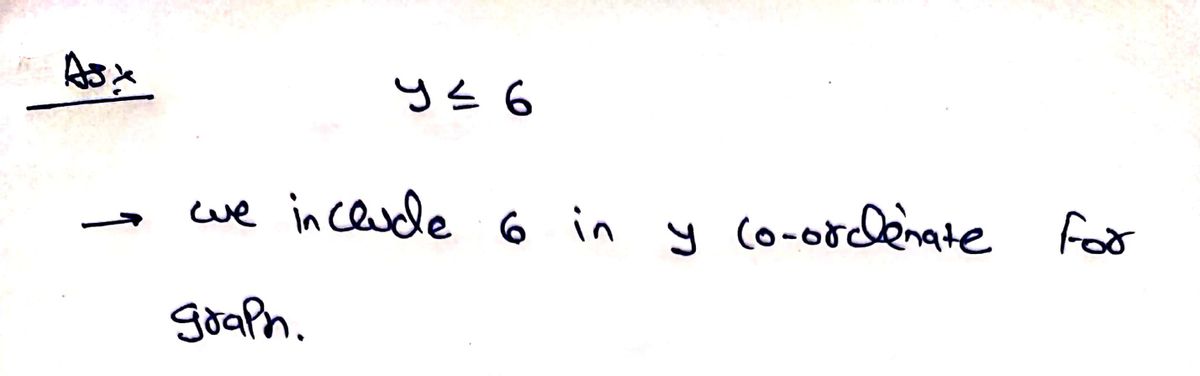 y ≤ 6
→ we include 6 in y co-ordinate for
graph.